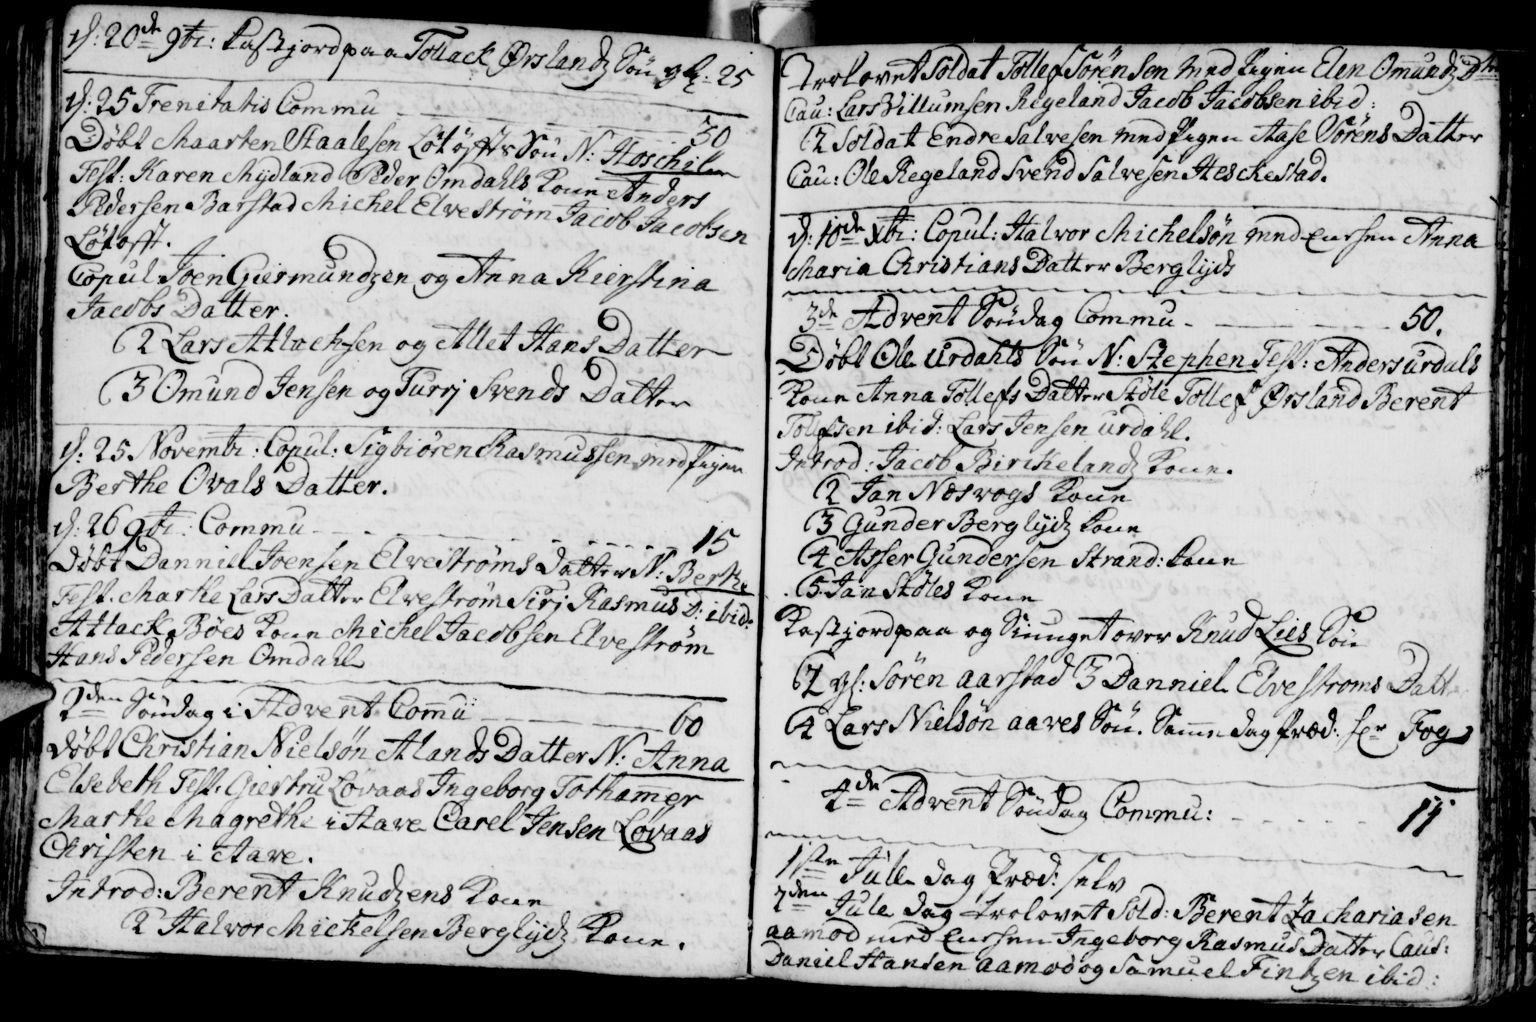 d: 20de 9br: Kastjord paa Tollack Ørslandz Søn gl: 25
d: 25 Trenitatis Commu - - - 30
Døbt Maarten Staalesen Løtoffts Søn N: Hoschil
Test: Karen Mydland Peder Omdahls Kone Anders
Pedersen Barstad Michel Elvestrøm Jacob Jacobsen
Løtofft.
Copul Joen Giermundzen og Anna Kierstina
Jacobs Datter.
2 Lars Attlachsen og Allet Hans Datter
3 Omund Jensen og Turrj Svends Datter
d: 25 Novembr: Copul: Sigbiøren Rasmussen med Pigen
Berthe Ovals Datter.
d: 26 9br: Commu - - - 15
Døbt Danniel Joensen Elvestrøms Datter N: Berthe
Test. Marthe Lars Datter Elvestrøm Sirj Rasmus D: ibid:
Attlack Bøes Kone Michel Jacobsen Elvestrøm
Hans Pedersen Omdahl
2den Søndag i Advent Comu - - - 60
Døbt Christian Nielsøn Alands Datter N: Anna
Elsebeth Test. Giertru Lovaas Ingeborg Tothamer
Marthe Magrethe i Aave Carel Jensen Løvaas
Christen i Aave.
Introd: Berent Knudzens Kone
2 Halvor Mickelsen Berglydz Kone.
Trolovet Soldat Tollef Sørensen med Pigen Elen Omundz Dtr
Cau: Lars Villumsen Regeland Jacob Jacobsen ibid:
2 Soldat Endre Salvesen med Pigen Aase Sørens Datter
Cau: Ole Regeland Svend Salvesen Heskestad.
d: 10de Xbr: Copul: Halvor Michelsøn med Enken Anna
Maria Christians Datter Berglydz
3de Advent Søndag Commu - - - 50.
Døbt Ole Urdahls Søn N: Stephen Test: Anders Urdals
Kone Anna Tollefs Datter Støle Tollef Ørsland Berent
Tollefsen ibid: Lars Jensen Urdahl.
Introd: Jacob Birkelandz Kone.
2 Jan Næsvogs Kone
3 Gunder Berglydz Kone
4 Asser Gundersen Strand: Kone
5 Jan Støles Kone
Kastjord paa og Siunget over Knud Lies Søn
2 gl: Søren Aarstad 3 Danniel Elvestrøms Datt
4 Lars Nielsøn Aaves Søn. Samme dag Præd: hr Fog
4de Advent Søndag Commu: - - - 11
1ste Jule dag Præd: selv
2den Jule dag trolovet Sold: Berent Zachariasen
Aamod med Enken Ingeborg Rasmus Datter Caut:
Daniel Hansen Aamod og Samuel Fintzen ibid: